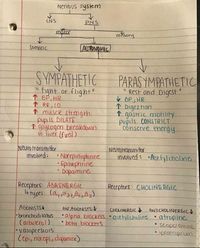 Nervous System
CNS PNS
motor sensory
Somatic AUTONOMIC
SYMPATHETIC PARASYMPATHETIC
"fight or flight" "Rest and Digest"
↑ BP, HR ↓ BP, HR
↑ RR, ↑ Digestion
↑ muscle strength ↑ gastric motility
pupils DILATE pupils CONSTRICT
↑ glycogen breakdown conserve energy
in liver (fuel)
Neurotransmitter Neurotransmitter
involved: • Norepinephrine involved: • Acetylcholine
• Epinephrine
• Dopamine
Receptors: ADRENERGIC Receptors: CHOLINERGIC
4 types
AGONISTS ANTAGONISTS CHOLINERGIC ANTICHOLINERGIC
• bronchodilators • alpha blockers • acetylcholine • atropine
• beta blockers
• vasopressors
(epi, norepi, dopamine)